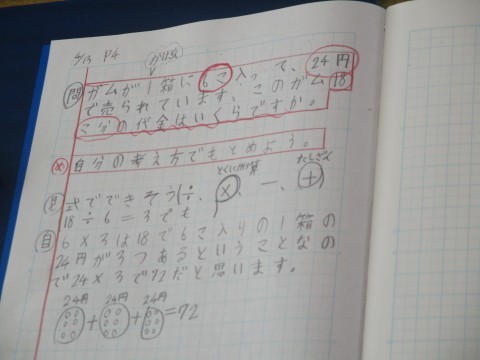 4/13 P4
問 ガムが1箱に6こ入って、24円
で売られています。このガム18
こ分の代金はいくらですか。
め 自分の考え方でもとめよう。
とくに計算 たしざん
見 式でできそう(÷、×、一、+)
18÷6=3でも
自 6×3は18で6こ入りの1箱の
24円が3つあるということなの
で24×3で72だと思います。
24円 24円 24円
+ + =72